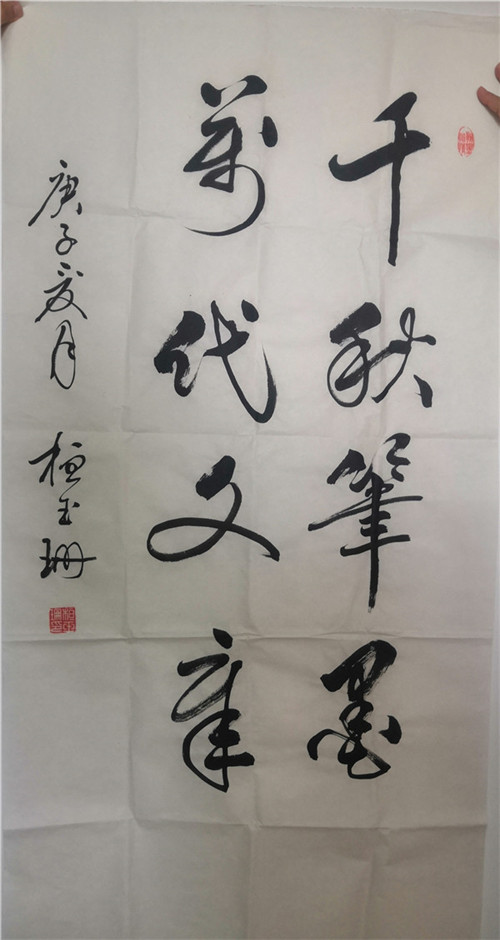 千秋筆墨
萬代文章
庚子夏月 桓玉珊